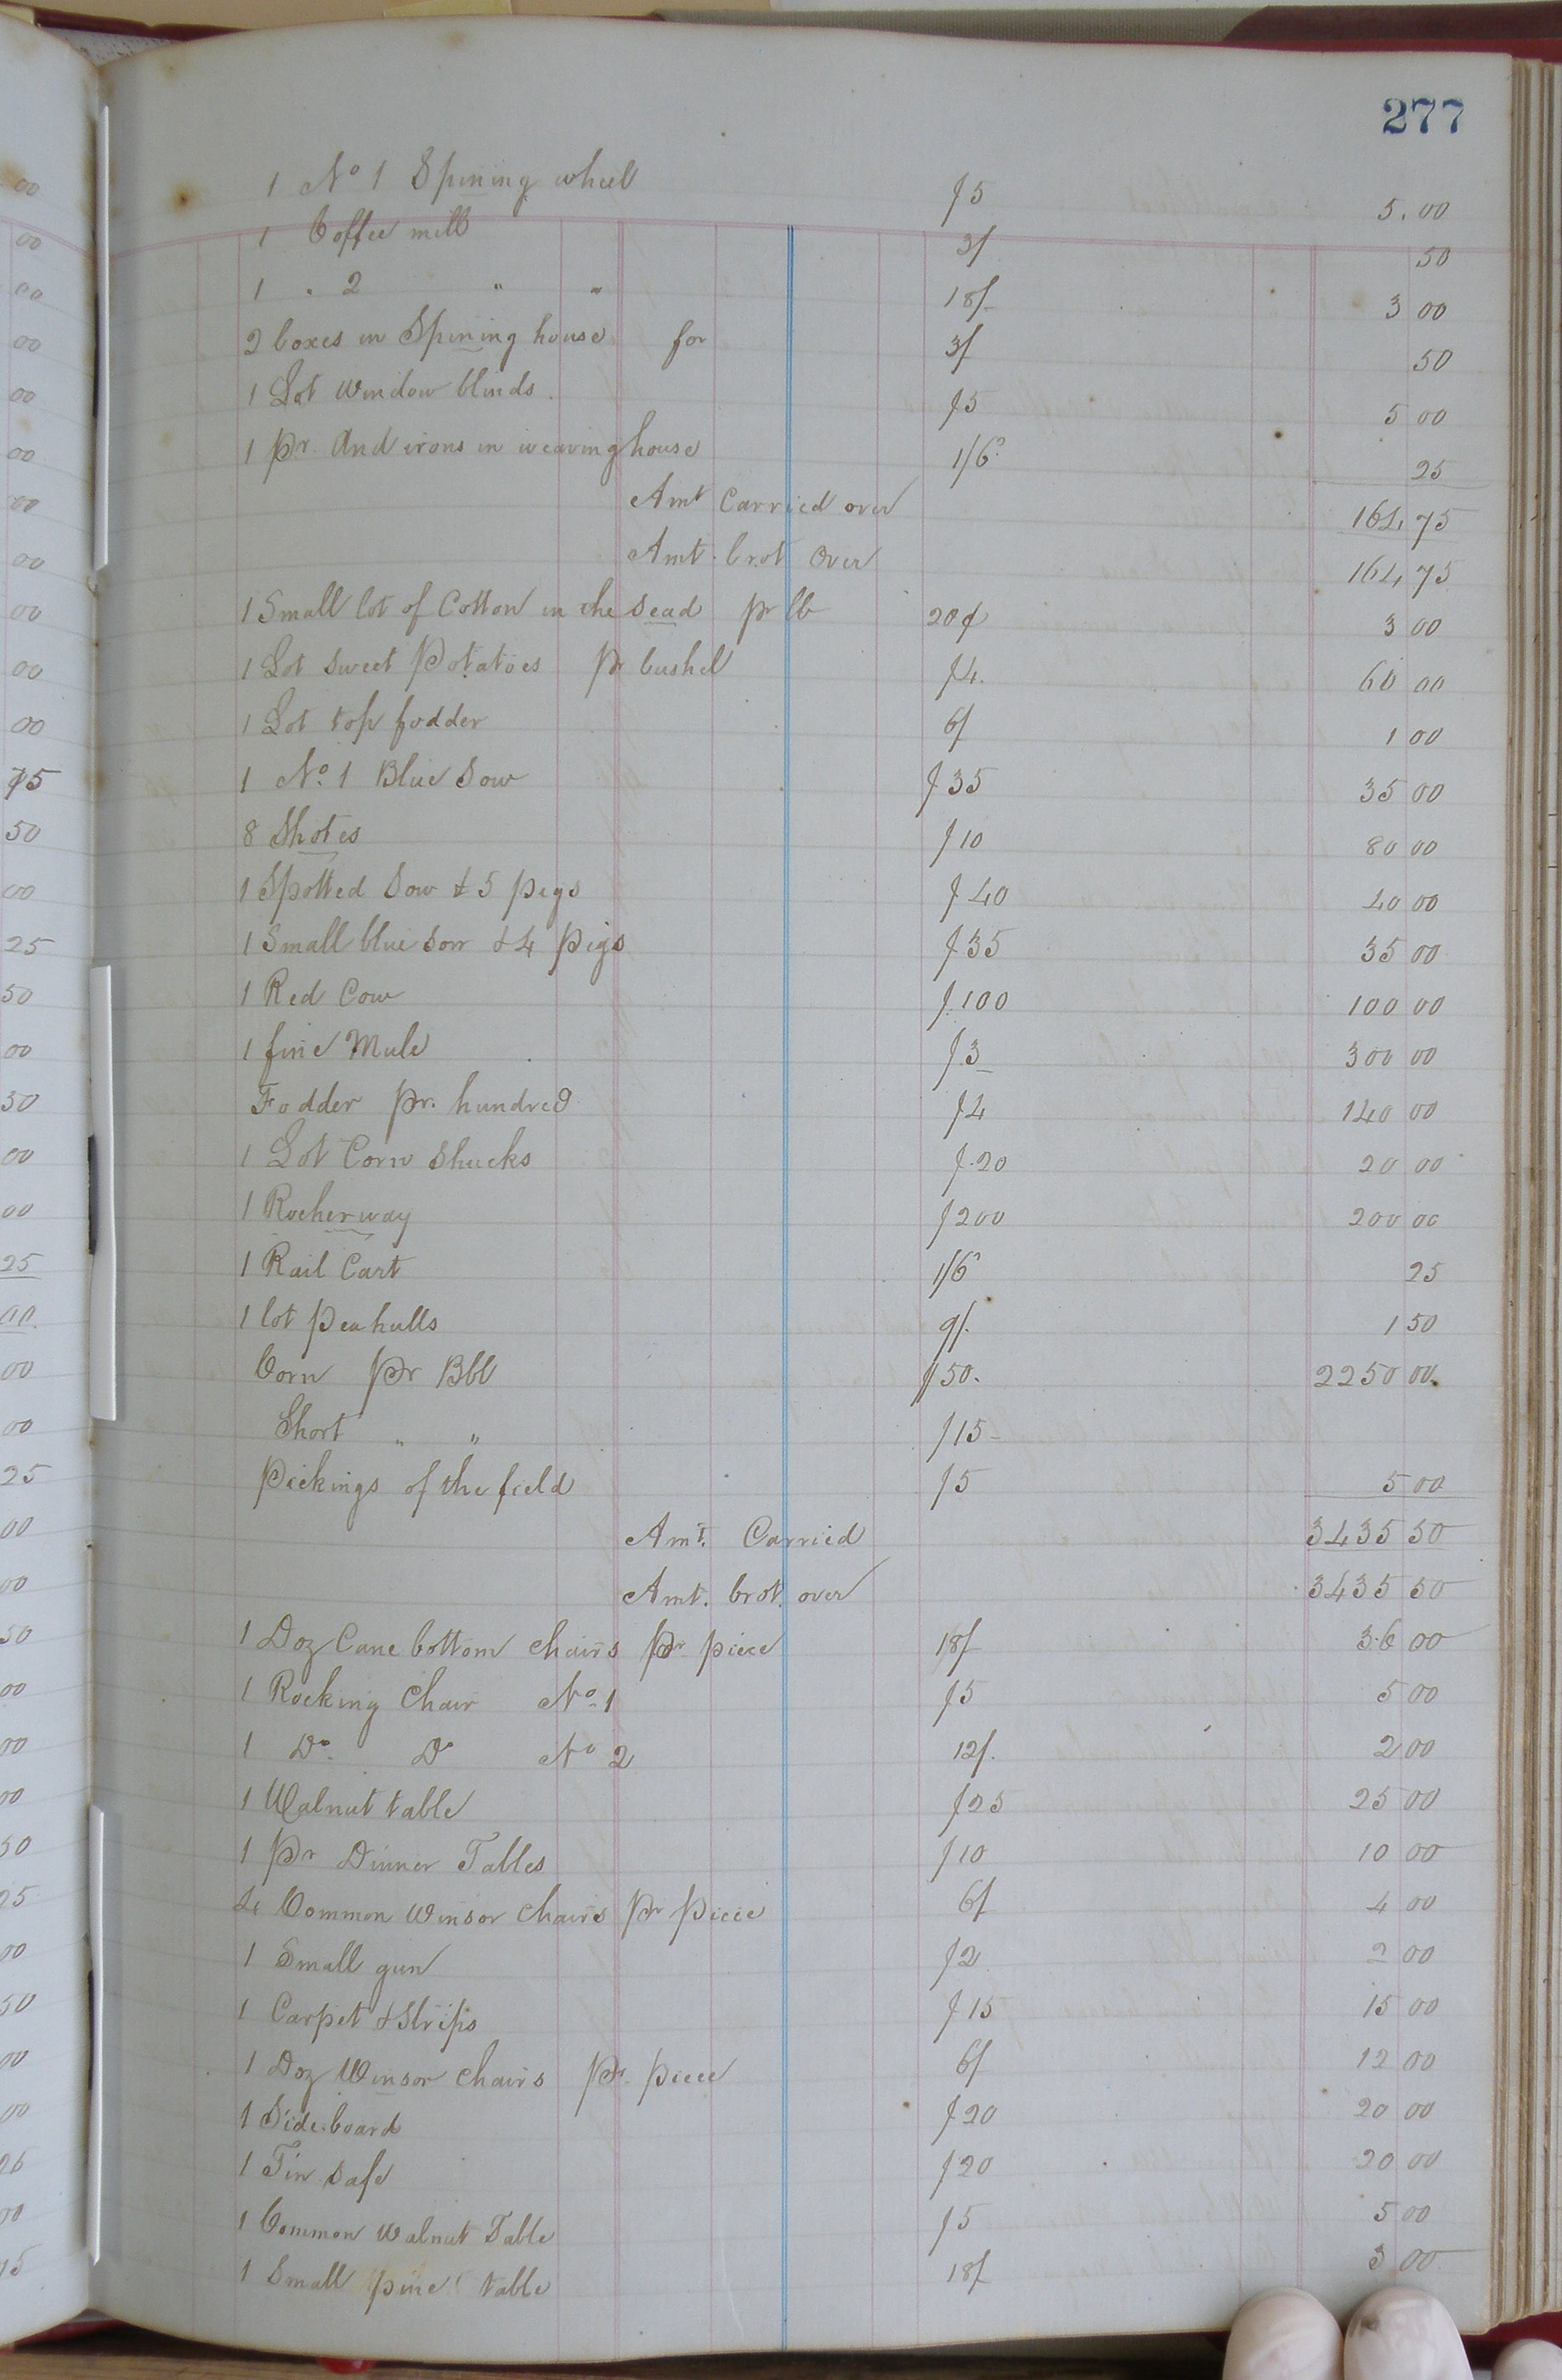 277
1 No 1 Spining wheel $5 5.00
1 Coffee mill 3/ 50
1 " 2 " " 18/ 3 00
2 boxes in Spining house for 3/ 50
1 Lot Window blinds $5 5 00
1 Pr. And irons in weaving house 1/6 25
Amt Carried over 164 75
Amt. brot Over 164 75
1 Small lot of Cotton in the sead pr lb 20¢ 3 00
1 Lot Sweet Potatoes Pr bushel $4. 60 00
1 Lot top fodder 6/ 1 00
1 No. 1 Blue Sow $35 35 00
8 Shotes $10 80 00
1 Spotted Sow & 5 pigs $40 40 00
1 Small blue sow & 4 Pigs $35 35 00
1 Red Cow $100 100 00
1 fine Mule $3 300 00
Fodder Pr. hundred $4 140 00
1 Lot Corn Shucks $20 20 00
1 Rocherway $200 200 00
1 Rail Cart 1/6 25
1 lot Pea hulls 9/. 1 50
Corn Pr Bbl $50. 2250 00
Short " " $15
Pickings of the field $5 5 00
Amt. Carried 3435 50
Amt. brot. over 3435 50
1 Doz Cane bottom chairs Pr. piece 18/ 36 00
1 Rocking Chair No. 1 $5 5 00
1 Do. Do No 2 12/. 2 00
1 Walnut table $25 25 00
1 Pr Dinner Tables $10 10 00
4 Common Winsor Chairs Pr Piece 6/ 4 00
1 Small gun $2 2 00
1 Carpet & Strips $15 15 00
1 Doz Winsor chairs Pr. piece 6/ 12 00
1 Side.board $20 20 00
1 Tin Safe $20 20 00
1 Common Walnut Table $5 5 00
1 Small pine table 18/ 3 00